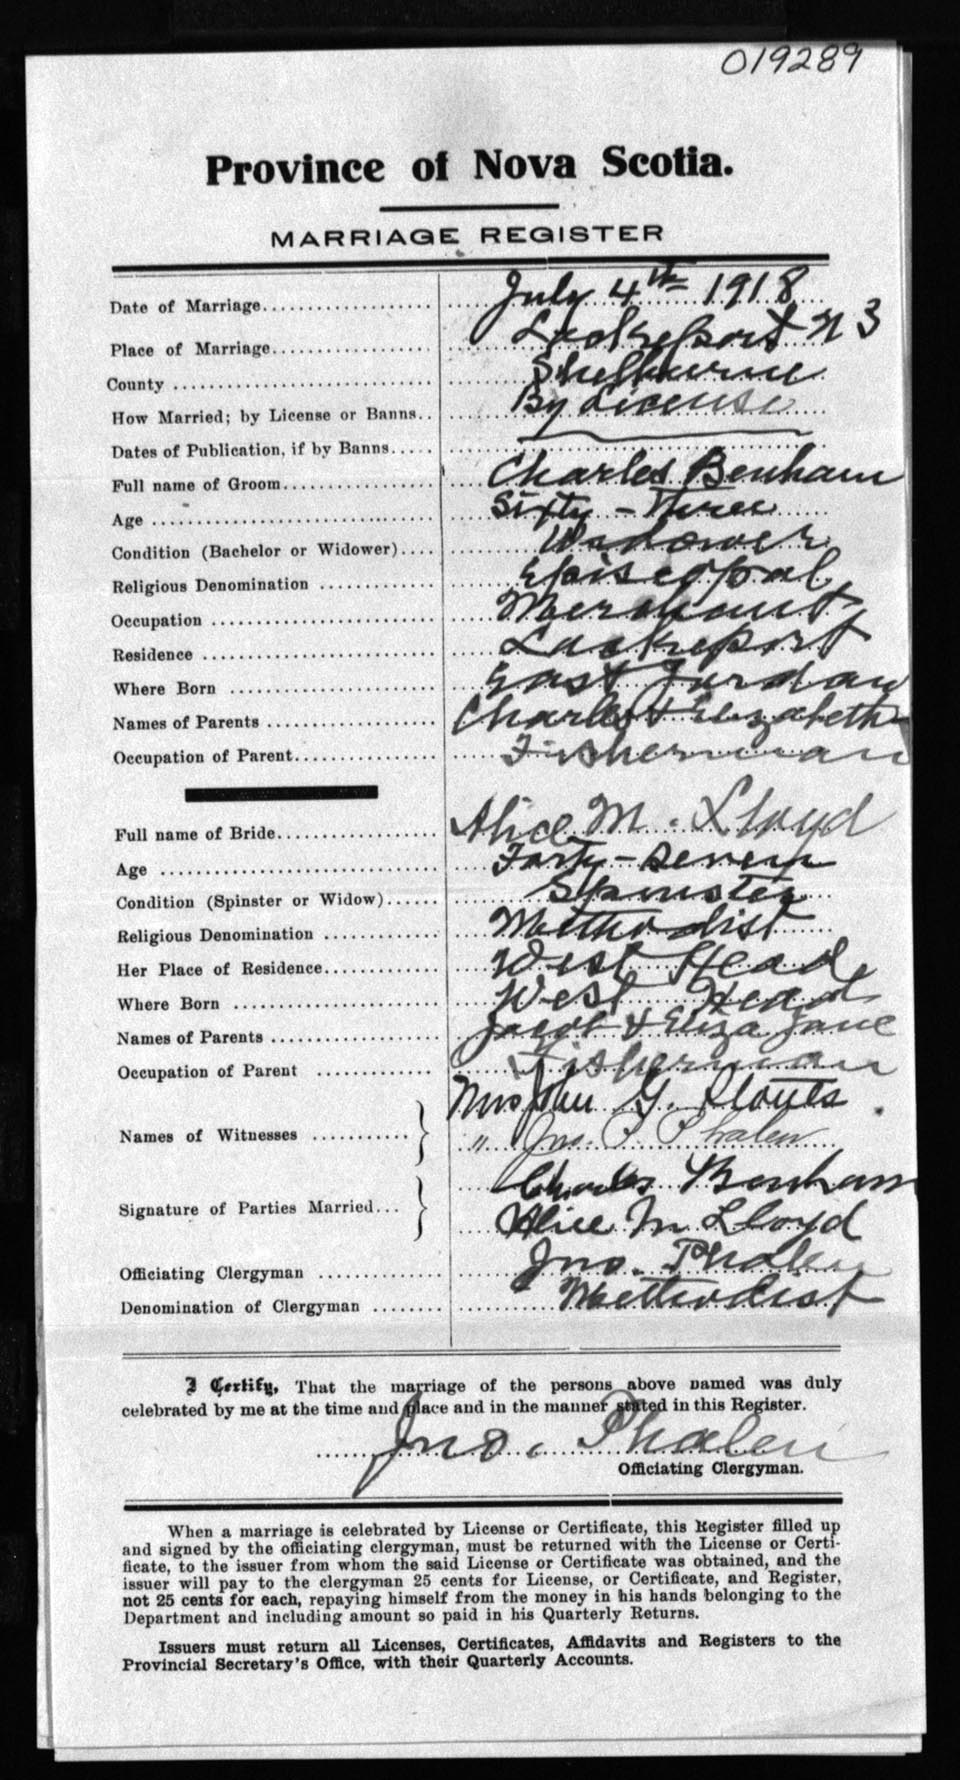 019289
Province of Nova Scotia.
MARRIAGE REGISTER
Date of Marriage July 4th 1918
Place of Marriage Lockeport N S
County Shelburne
How Married; by License or Banns By License
Dates of Publication, if by Banns
Full name of Groom Charles Benham
Age Sixty-Three
Condition (Bachelor or Widower) Widower
Religious Denomination Episcopal
Occupation Merchant
Residence Lockeport
Where Born East Jordan
Names of Parents Charles & Elizabeth
Occupation of Parent Fisherman
Full name of Bride Alice M. Lloyd
Age Forty-Seven
Condition (Spinster or Widow) Spinster
Religious Denomination Methodist
Her Place of Residence West Head
Where Born West Head
Names of Parents Jacob & Eliza Jane
Occupation of Parent Fisherman
Names of Witnesses Mrs John G.
" Jno. P Phalen
Signature of Parties Married Charles Benham
Alice M Lloyd
Officiating Clergyman Jno. Phalen
Denomination of Clergyman Methodist
I Certify, That the marriage of the persons above named was duly
celebrated by me at the time and place and in the manner stated in this Register.
Jno. Phalen
Officiating Clergyman.
When a marriage is celebrated by License or Certificate, this Register filled up
and signed by the officiating clergyman, must be returned with the License or Certi-
ficate, to the issuer from whom the said License or Certificate was obtained, and the
issuer will pay to the clergyman 25 cents for License, or Certificate, and Register,
not 25 cents for each, repaying himself from the money in his hands belonging to the
Department and including amount so paid in his Quarterly Returns.
Issuers must return all Licenses, Certificates, Affidavits and Registers to the
Provincial Secretary's Office, with their Quarterly Accounts.